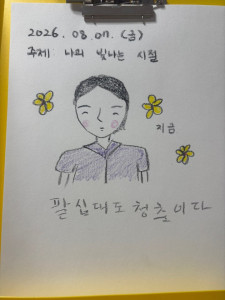 2026. 08. 07. (금)
주제 나의 빛나는 시절
지금
팔십대도 청춘이다